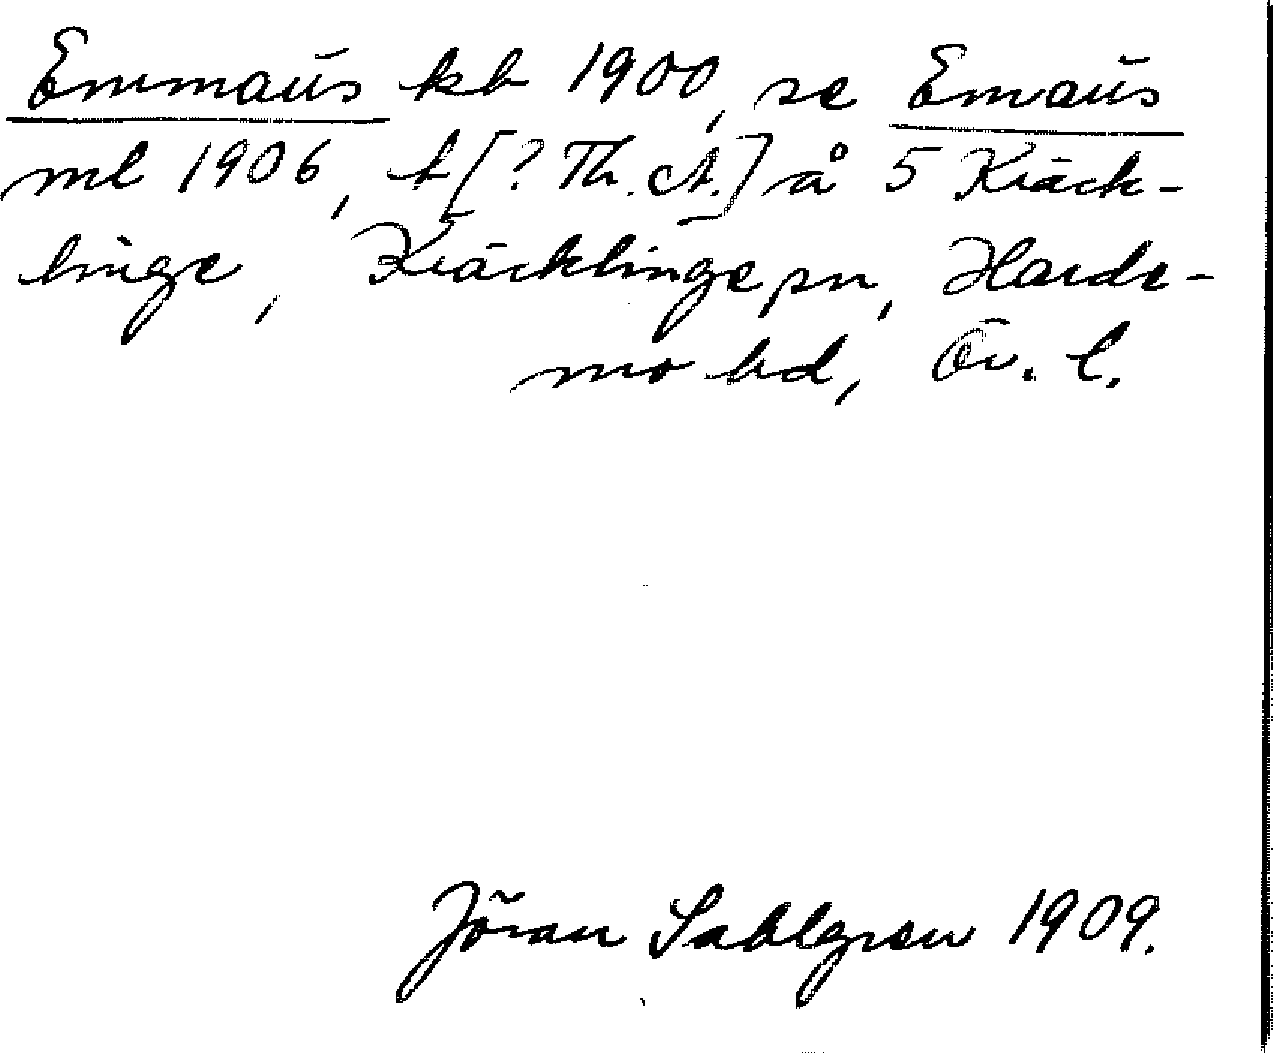 Emmaus kb 1900, se Emaus
ml 1906, t [? Th. A.] å 5 Kräck-
linge, Kräcklinge sn, Harde-
mo hd, Ör. l.
Jöran Sahlgren 1909.